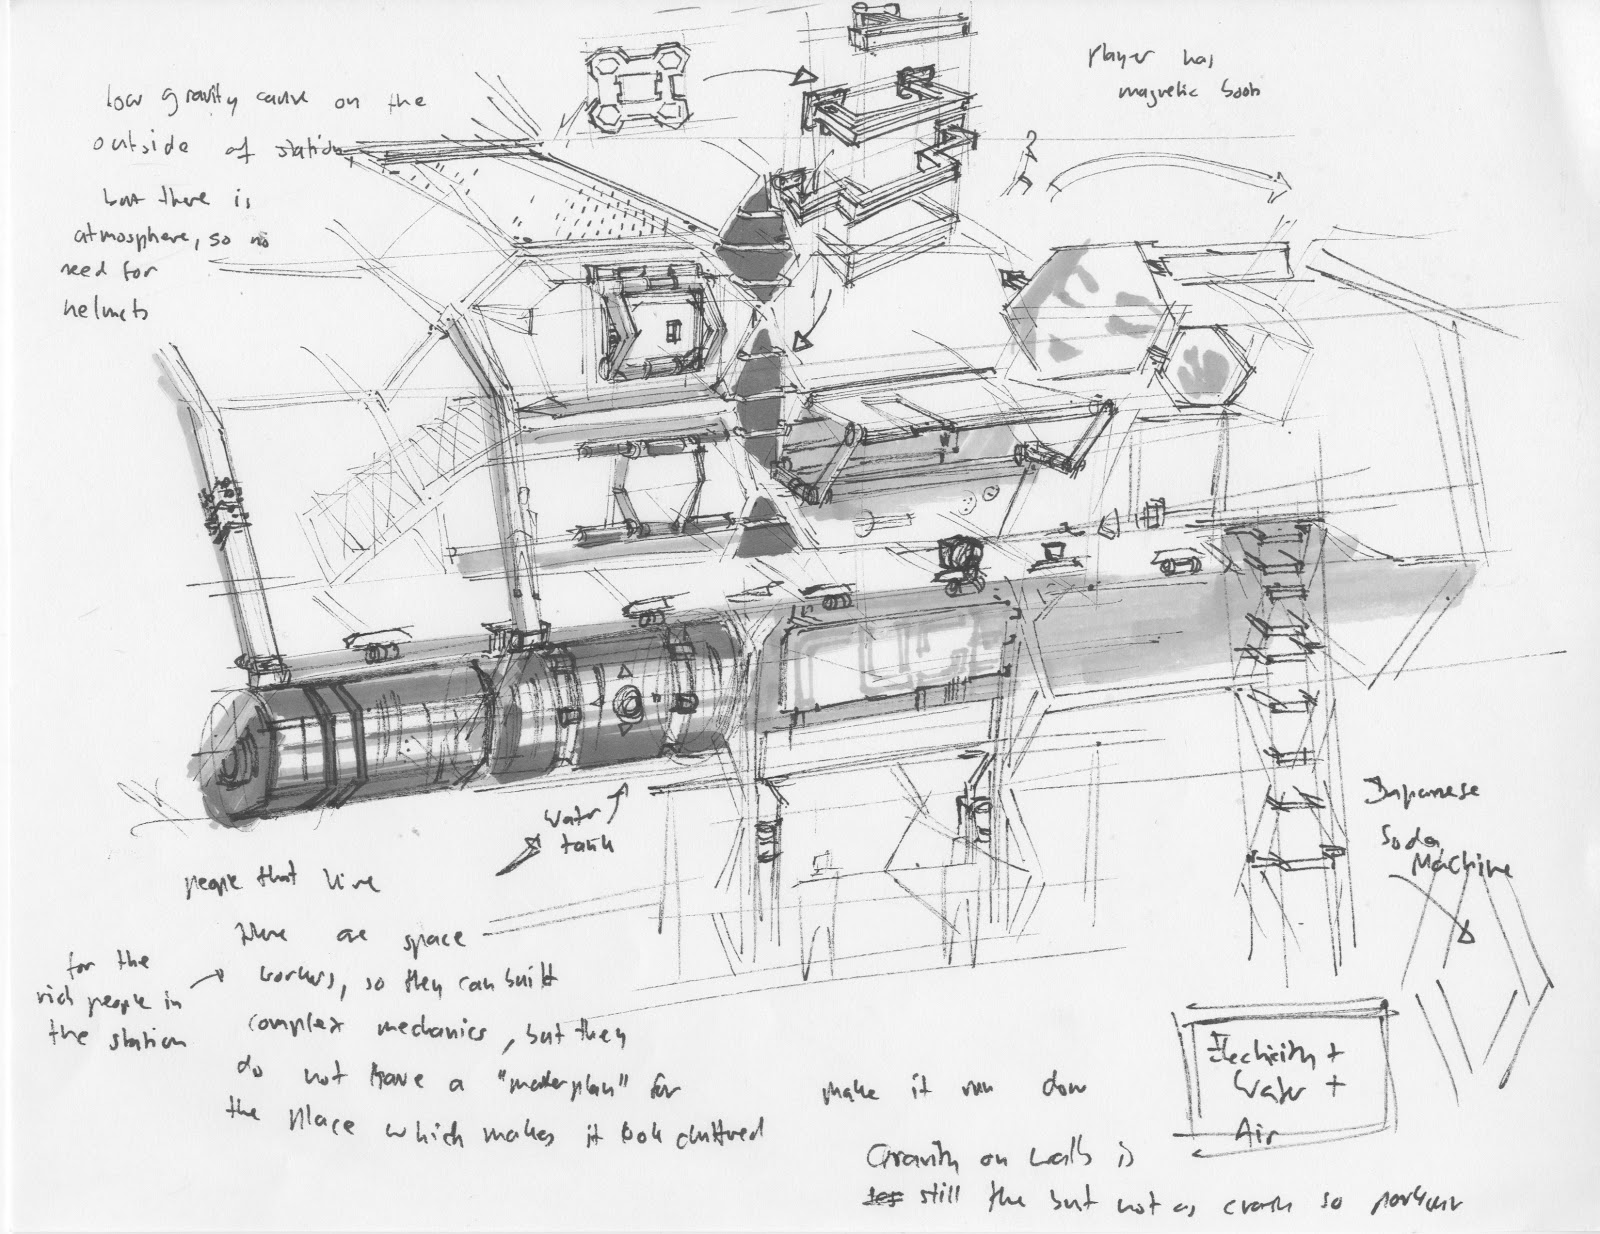 low gravity cause on the
outside of station,
but there is
atmosphere, so no
need for
helmets
Player has
magnetic boots
Water
tank
Japanese
Soda
Machine
people that live
are space
workers, so they can built
complex mechanics, but they
do not have a "masterplan" for
the place which makes it look cluttered
for the
rich people in
the station
make it run down
Electricity +
Water +
Air
Gravity on walls is
still the but not as so parkour